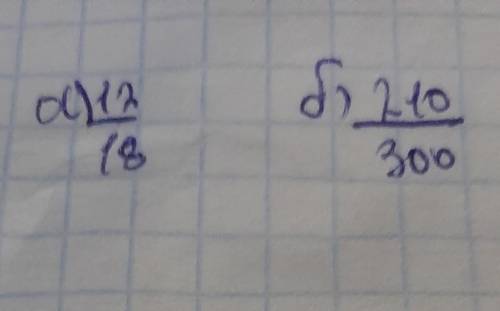 а) 12/18 б) 210/300